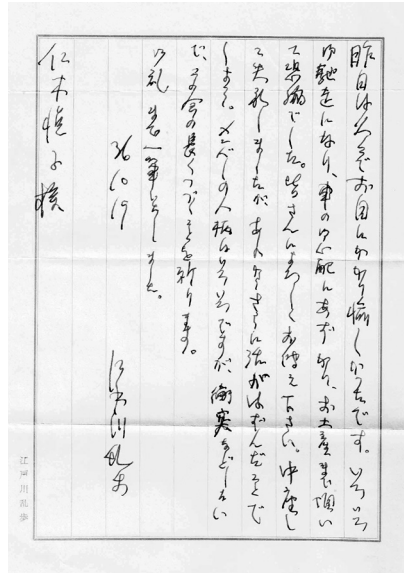 昨日は久々でお目にかかり愉しかったです。いろいろ
御馳走になり、車の御心配にあずかり、お土産まで頂い
て恐縮でした。皆さんによろしくお伝え下さい。中座し
て失礼しましたが、あれからさらに話がはずんだことで
しょう。メンバーの人柄はいろいろですが、
だ、この会の長くつづくことを祈ります。
御礼まで一筆しました。
36.10.19
江戸川乱歩
仁木悦子様
江戸川乱歩